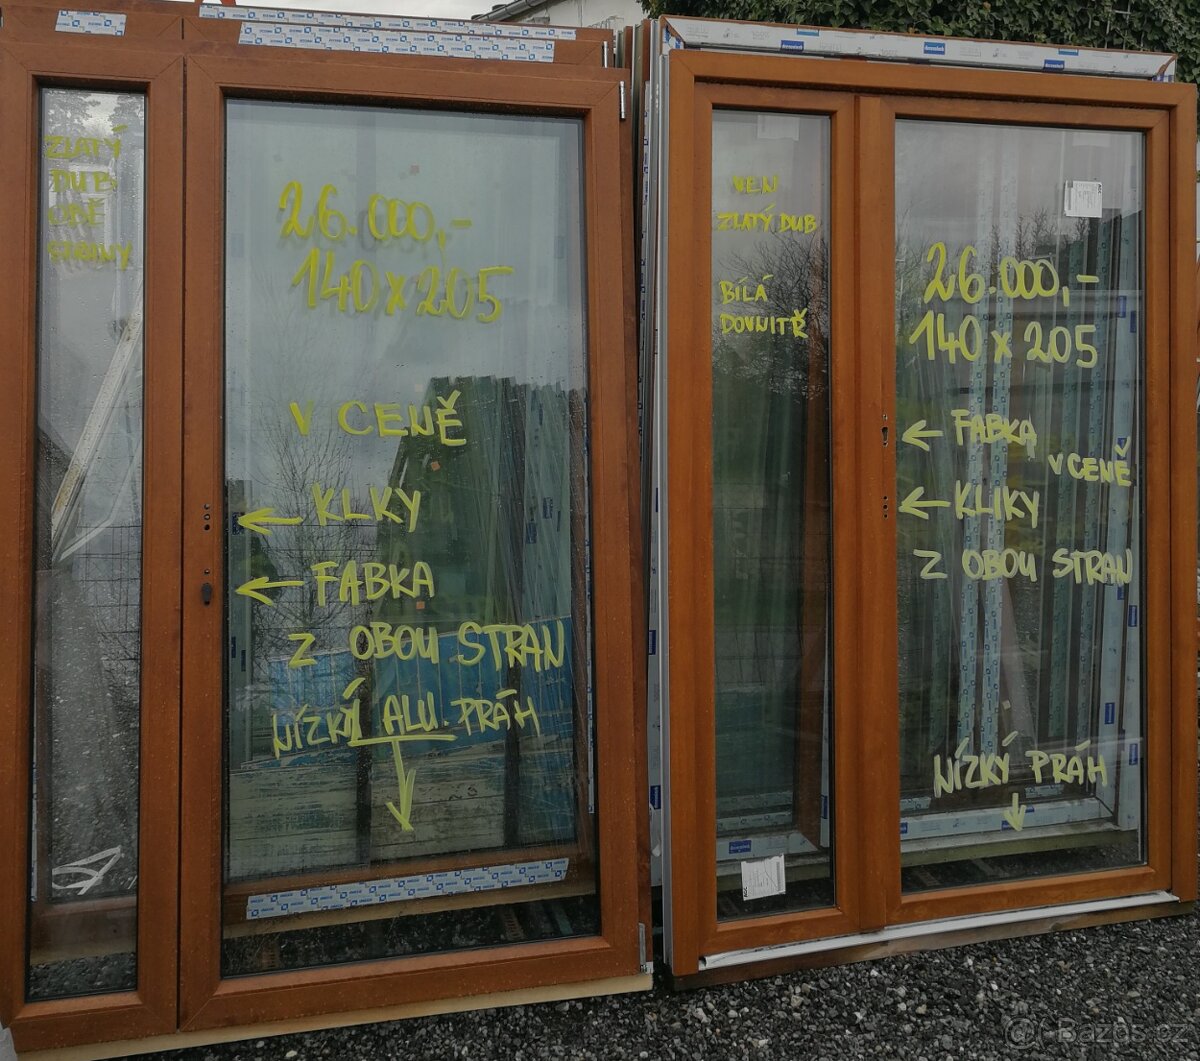 ZLATÝ
DUB
OBĚ
STRANY
26.000,-
140x205
V CENĚ
KLKY
FABKA
Z OBOU STRAN
NÍZKÝ ALU. PRÁH
VEN
ZLATÝ DUB
BÍLÁ
DOVNITŘ
26.000,-
140 x 205
FABKA
V CENĚ
KLIKY
Z OBOU STRAN
NÍZKÝ PRÁH
Bazos.cz